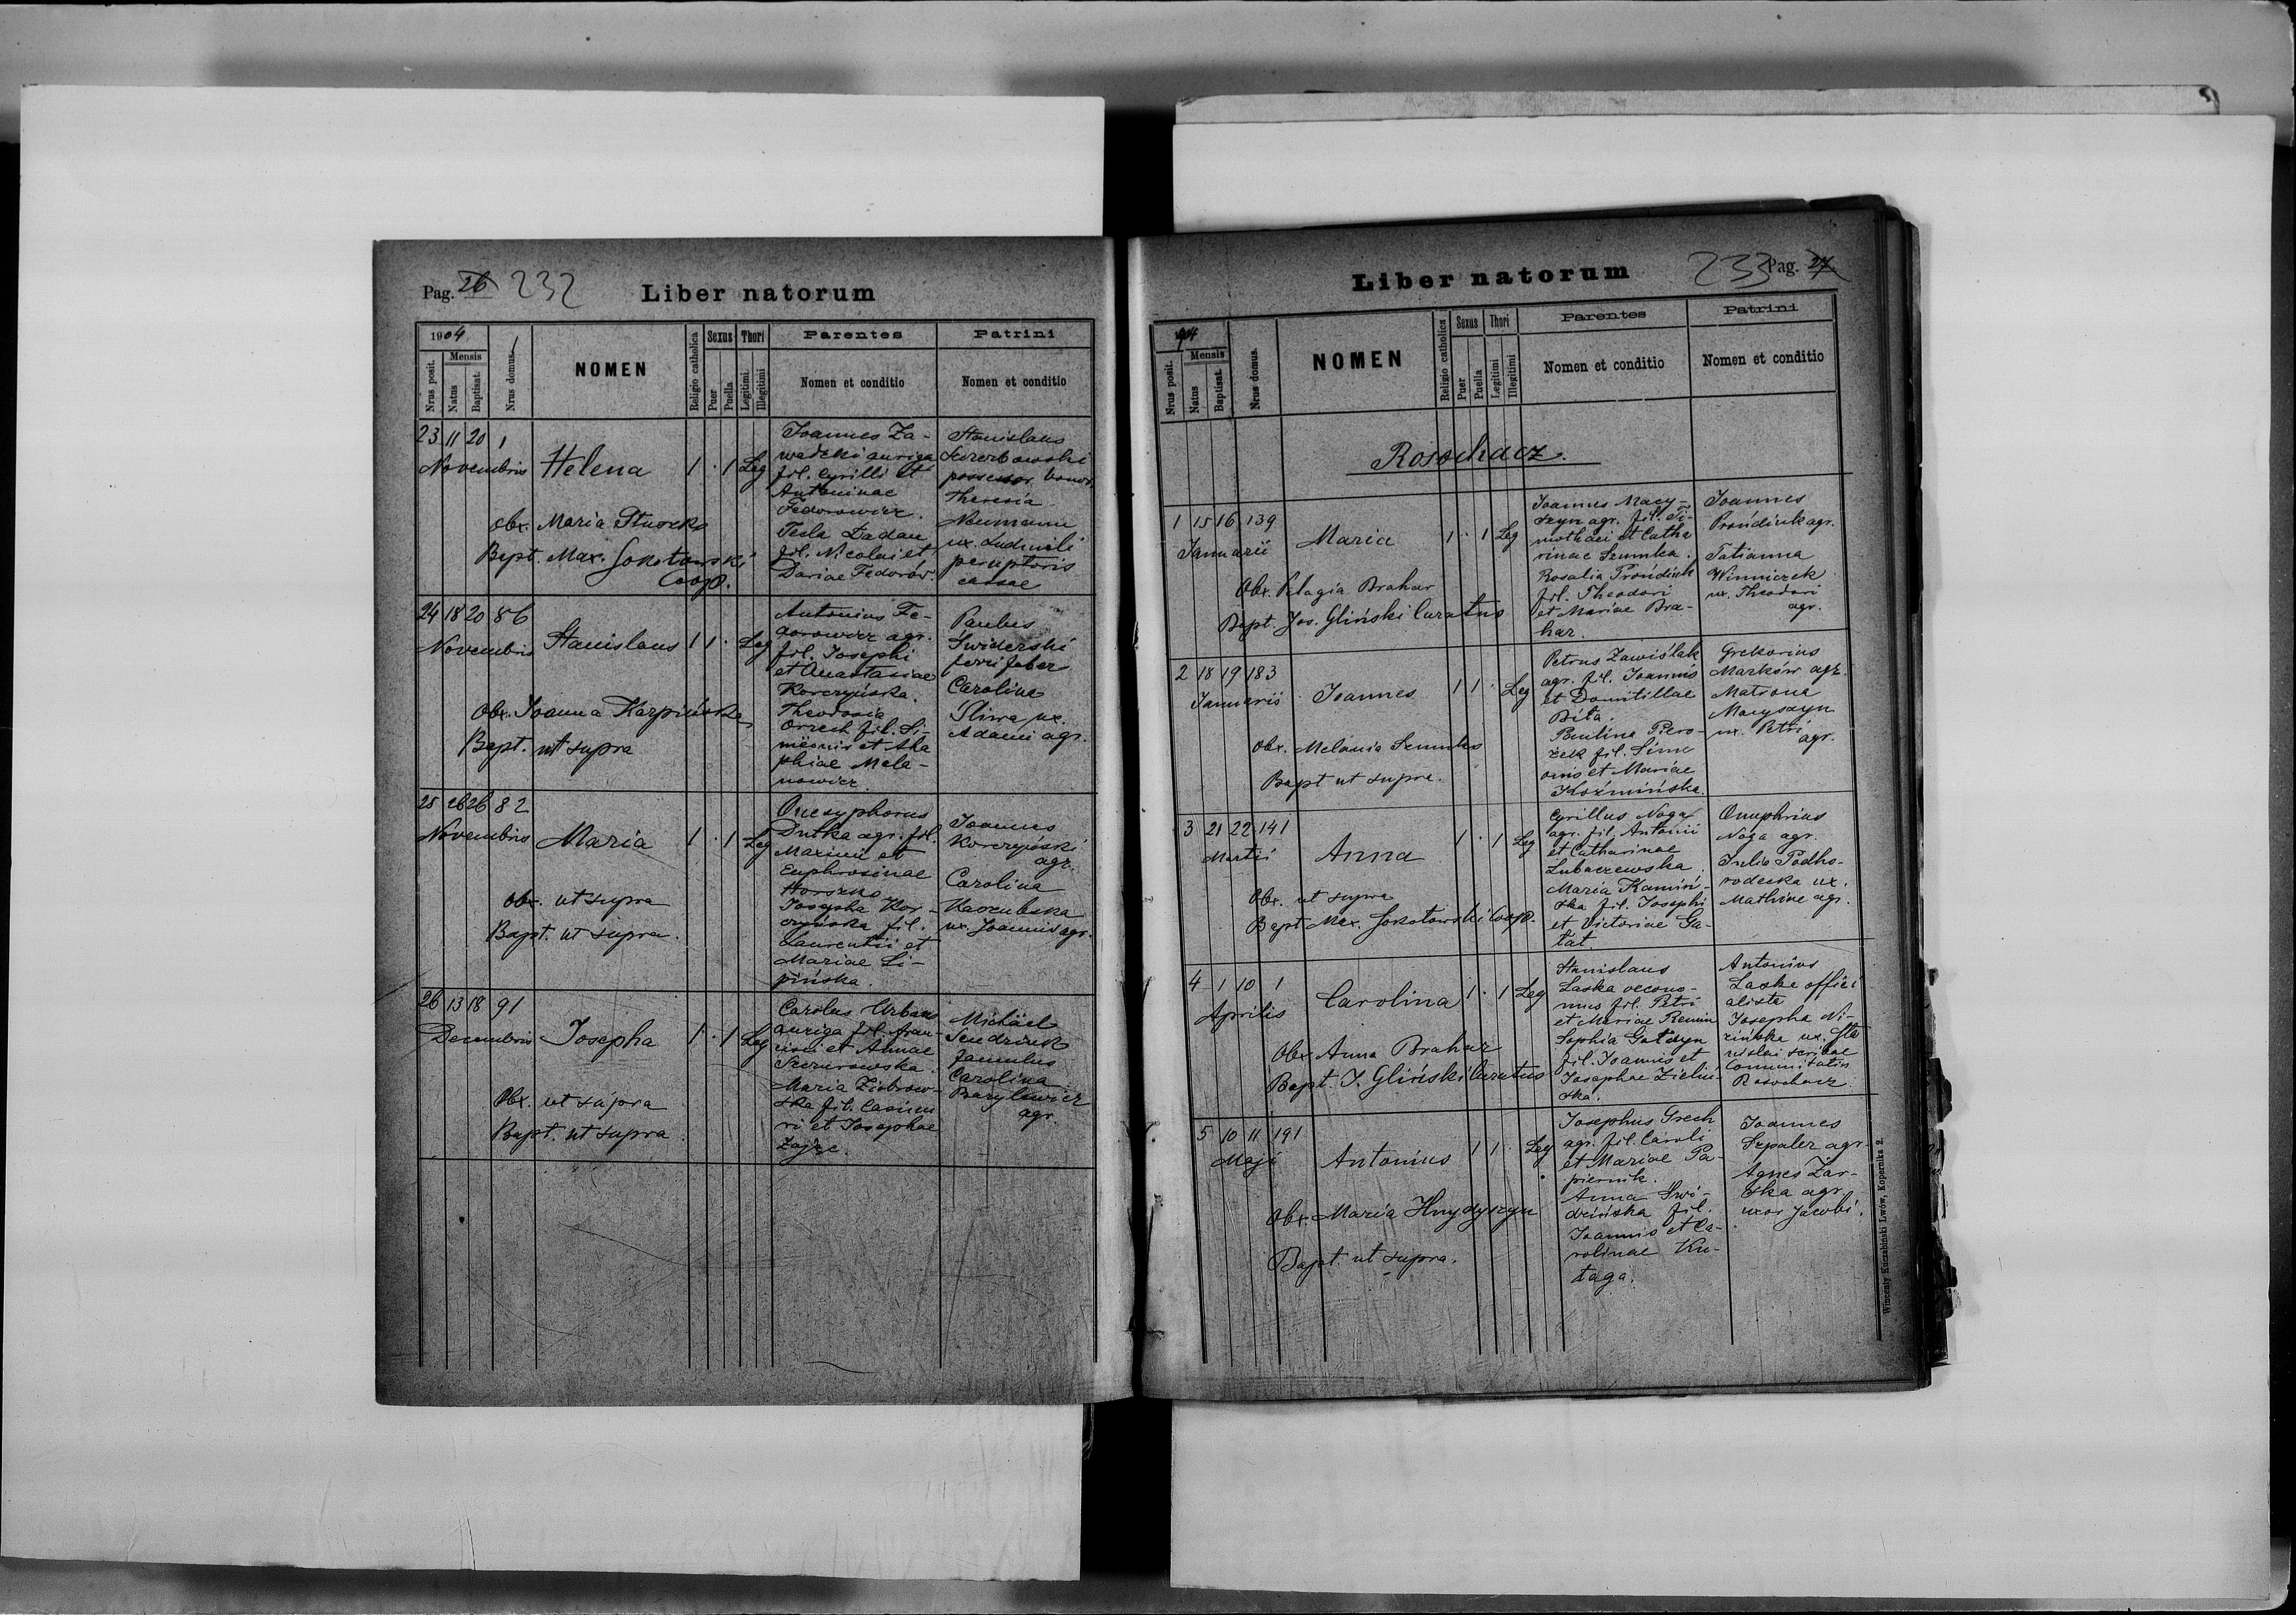 Pag. 26 232
Liber natorum
1904
Nrus posit.
Mensis
Natus
Baptisat.
Nrus domus.
NOMEN
Religio catholica
Sexus
Puer
Puella
Thori
Legitimi.
Illegitimi
Parentes
Nomen et conditio
Patrini
Nomen et conditio
23 11 20 1
Novembris
Helena
1 · 1 Leg
Obx. Maria
Bapt. Max. Sokołowski
Coop.
Joannes Za-
wadzki auriga
fil. Cyrilli et
Antoninae
Fedorowicz.
Tecla Dadan
fil. Nicolai et
Dariae Fedorów.
Stanislaus
Szczerbowski
possessor bonor.
Theresia
Neumann
ux. Ludmili
perceptoris
cassae
24 18 20 86
Novembris
Stanislaus
1 1 · Leg
Obx. Joanna Karpińska
Bapt. ut supra
Antonius Fe-
dorowicz agr.
fil. Josephi
et Anastasiae
Korczyńska.
Theodosia
Orzech fil. Si-
meonis et Aga
phiae Mela-
nowicz.
Paulus
Świderski
ferri faber
Carolina
Śliwa ux.
Adami agr.
25 26 26 82
Novembris
Maria
1 · 1 Leg
Obx. ut supra
Bapt. ut supra.
Onesyphorus
Dutka agr. fil.
Maximi et
Euphrosinae
Horszko
Josepha Kor-
czyńska fil.
Laurentii et
Mariae Li-
pińska.
Joannes
Korczyński
agr.
Carolina
Kaczubska
ux. Joannis agr.
26 13 18 91
Decembris
Josepha
1 · 1 Leg
Obx. ut supra
Bapt. ut supra
Carolus Urban
auriga fil. Fran-
cisci et Annae
Szczurowska.
Maria Ziobrow-
ska fil. Casimi
ri et Josephae
Zając.
Michael
Jendrzek
famulus
Carolina
Barylewicz
agr.
Liber natorum
233 Pag. 27
1904
Nrus posit.
Mensis
Natus
Baptisat.
Nrus domus.
NOMEN
Religio catholica
Sexus
Puer
Puella
Thori
Legitimi
Illegitimi
Parentes
Nomen et conditio
Patrini
Nomen et conditio
Rosochacz.
1 15 16 139
Januarii
Maria
1 · 1 Leg
Obx. Pelagia Brahar
Bapt. Jos. Gliński Curatus
Joannes Macy-
szyn agr. fil. Ti-
mothaei et Catha
rinae Szumka.
Rosalia Prońdiuk
fil. Theodori
et Mariae Bra-
har.
Joannes
Prońdiuk agr.
Tatianna
Winniczek
ux. Theodori
agr.
2 18 19 183
Januarii
Joannes
1 1 · Leg
Obx. Melania Szumka
Bapt ut supra.
Petrus Zawiślak
agr. fil. Joannis
et Domitillae
Bita.
Paulina Piero-
żek fil. Sime
onis et Mariae
Kozmińska.
Grehorius
Marków agr.
Matrona
Macyszyn
ux. Petri
agr.
3 21 22 141
Martii
Anna
1 · 1 Leg
Obx. ut supra
Bapt Max. Sokołowski Coop.
Cyrillus Noga
agr. fil. Antonii
et Catharinae
Lubaczewska.
Maria Kamiń-
ska fil. Josephi
et Victoriae Ga-
łat.
Onuphrius
Noga agr.
Julia Podho-
rodecka ux.
Mathiae agr.
4 1 10 1
Aprilis
Carolina
1 · 1 Leg
Obx Anna Brahar
Bapt. J. Gliński Curatus
Stanislaus
Laska oecono-
mus fil. Petri
et Mariae
Sophia Gołdyn
fil. Joannis et
Josephae Zieliń-
ska.
Antonius
Laska offici
alista
Josepha Ni-
zińska ux. Sta
nislai scribae
Communitatis
Rosochacz.
5 10 11 191
Maji
Antonius
1 1 · Leg
Obx. Maria Hnydyszyn
Bapt. ut supra.
Josephus Grech
agr. fil. Caroli
et Mariae Pa-
piernik.
Anna Świ-
dzińska fil.
Joannis et Ca-
rolinae Ku-
taga.
Joannes
Szpaler agr.
Agnes Żar-
ska agr.
uxor Jacobi.
Wincenty Kuczabiński Lwów, Kopernika 2.